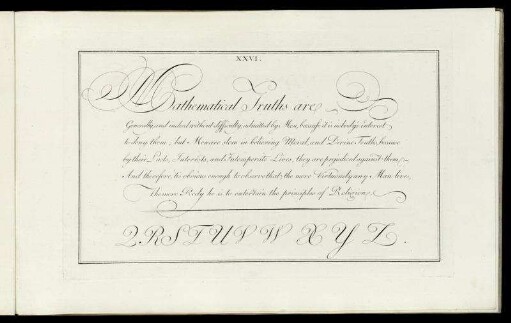 XXVI.
Mathematical Truths are
Generally, and indeed without difficulty admitted by Men, because it is nobody's interest
to deny them; but Men are slow in believing Moral and Divine Truth, because
by their Lusts, Interests, and Intemperate Lives, they are prejudiced against them;
And therefore, tis obvious enough to observe that the more Virtuously any Man lives
the more Ready he is to entertain the principles of Religion.
Q R S T U V W X Y Z.